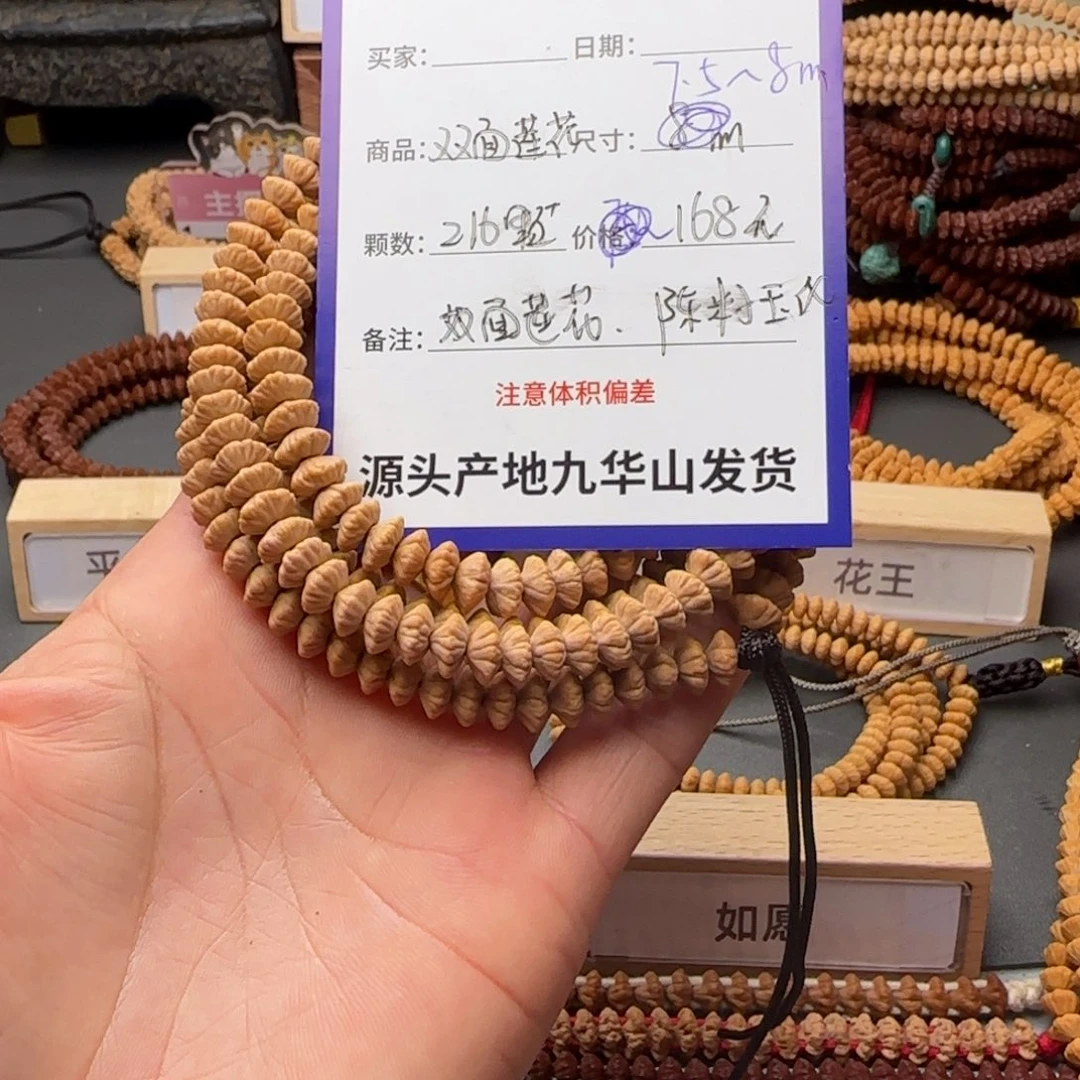 买家: 日期:
7.5~8m
商品: 双面莲花 尺寸: m
颗数: 216颗 价格: 168元
备注: 双面莲花. 陈料玉化
注意体积偏差
源头产地九华山发货
主播
花王
如愿